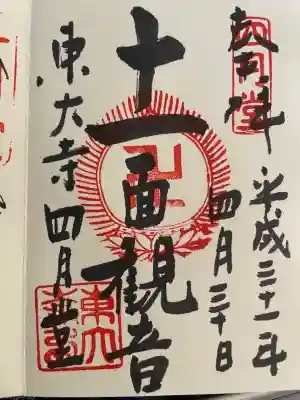 奉拝
平成三十一年
四月三十日
十一面観音
東大寺四月堂